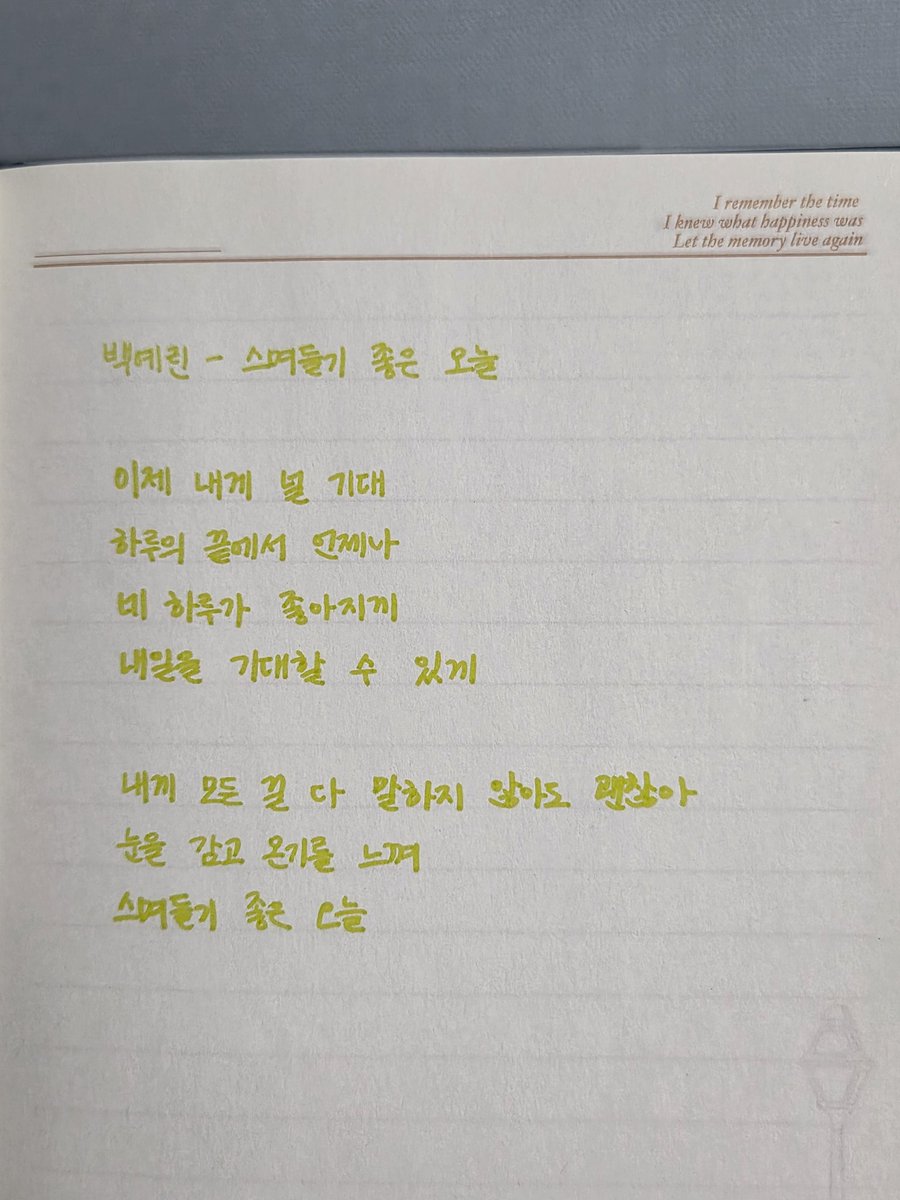 I remember the time
I knew what happiness was
Let the memory live again
백예린 - 스며들기 좋은 오늘
이제 내게 널 기대
하루의 끝에서 언제나
네 하루가 좋아지게
내일을 기대할 수 있게
내게 모든 걸 다 말하지 않아도 괜찮아
눈을 감고 온기를 느껴
스며들기 좋은 오늘